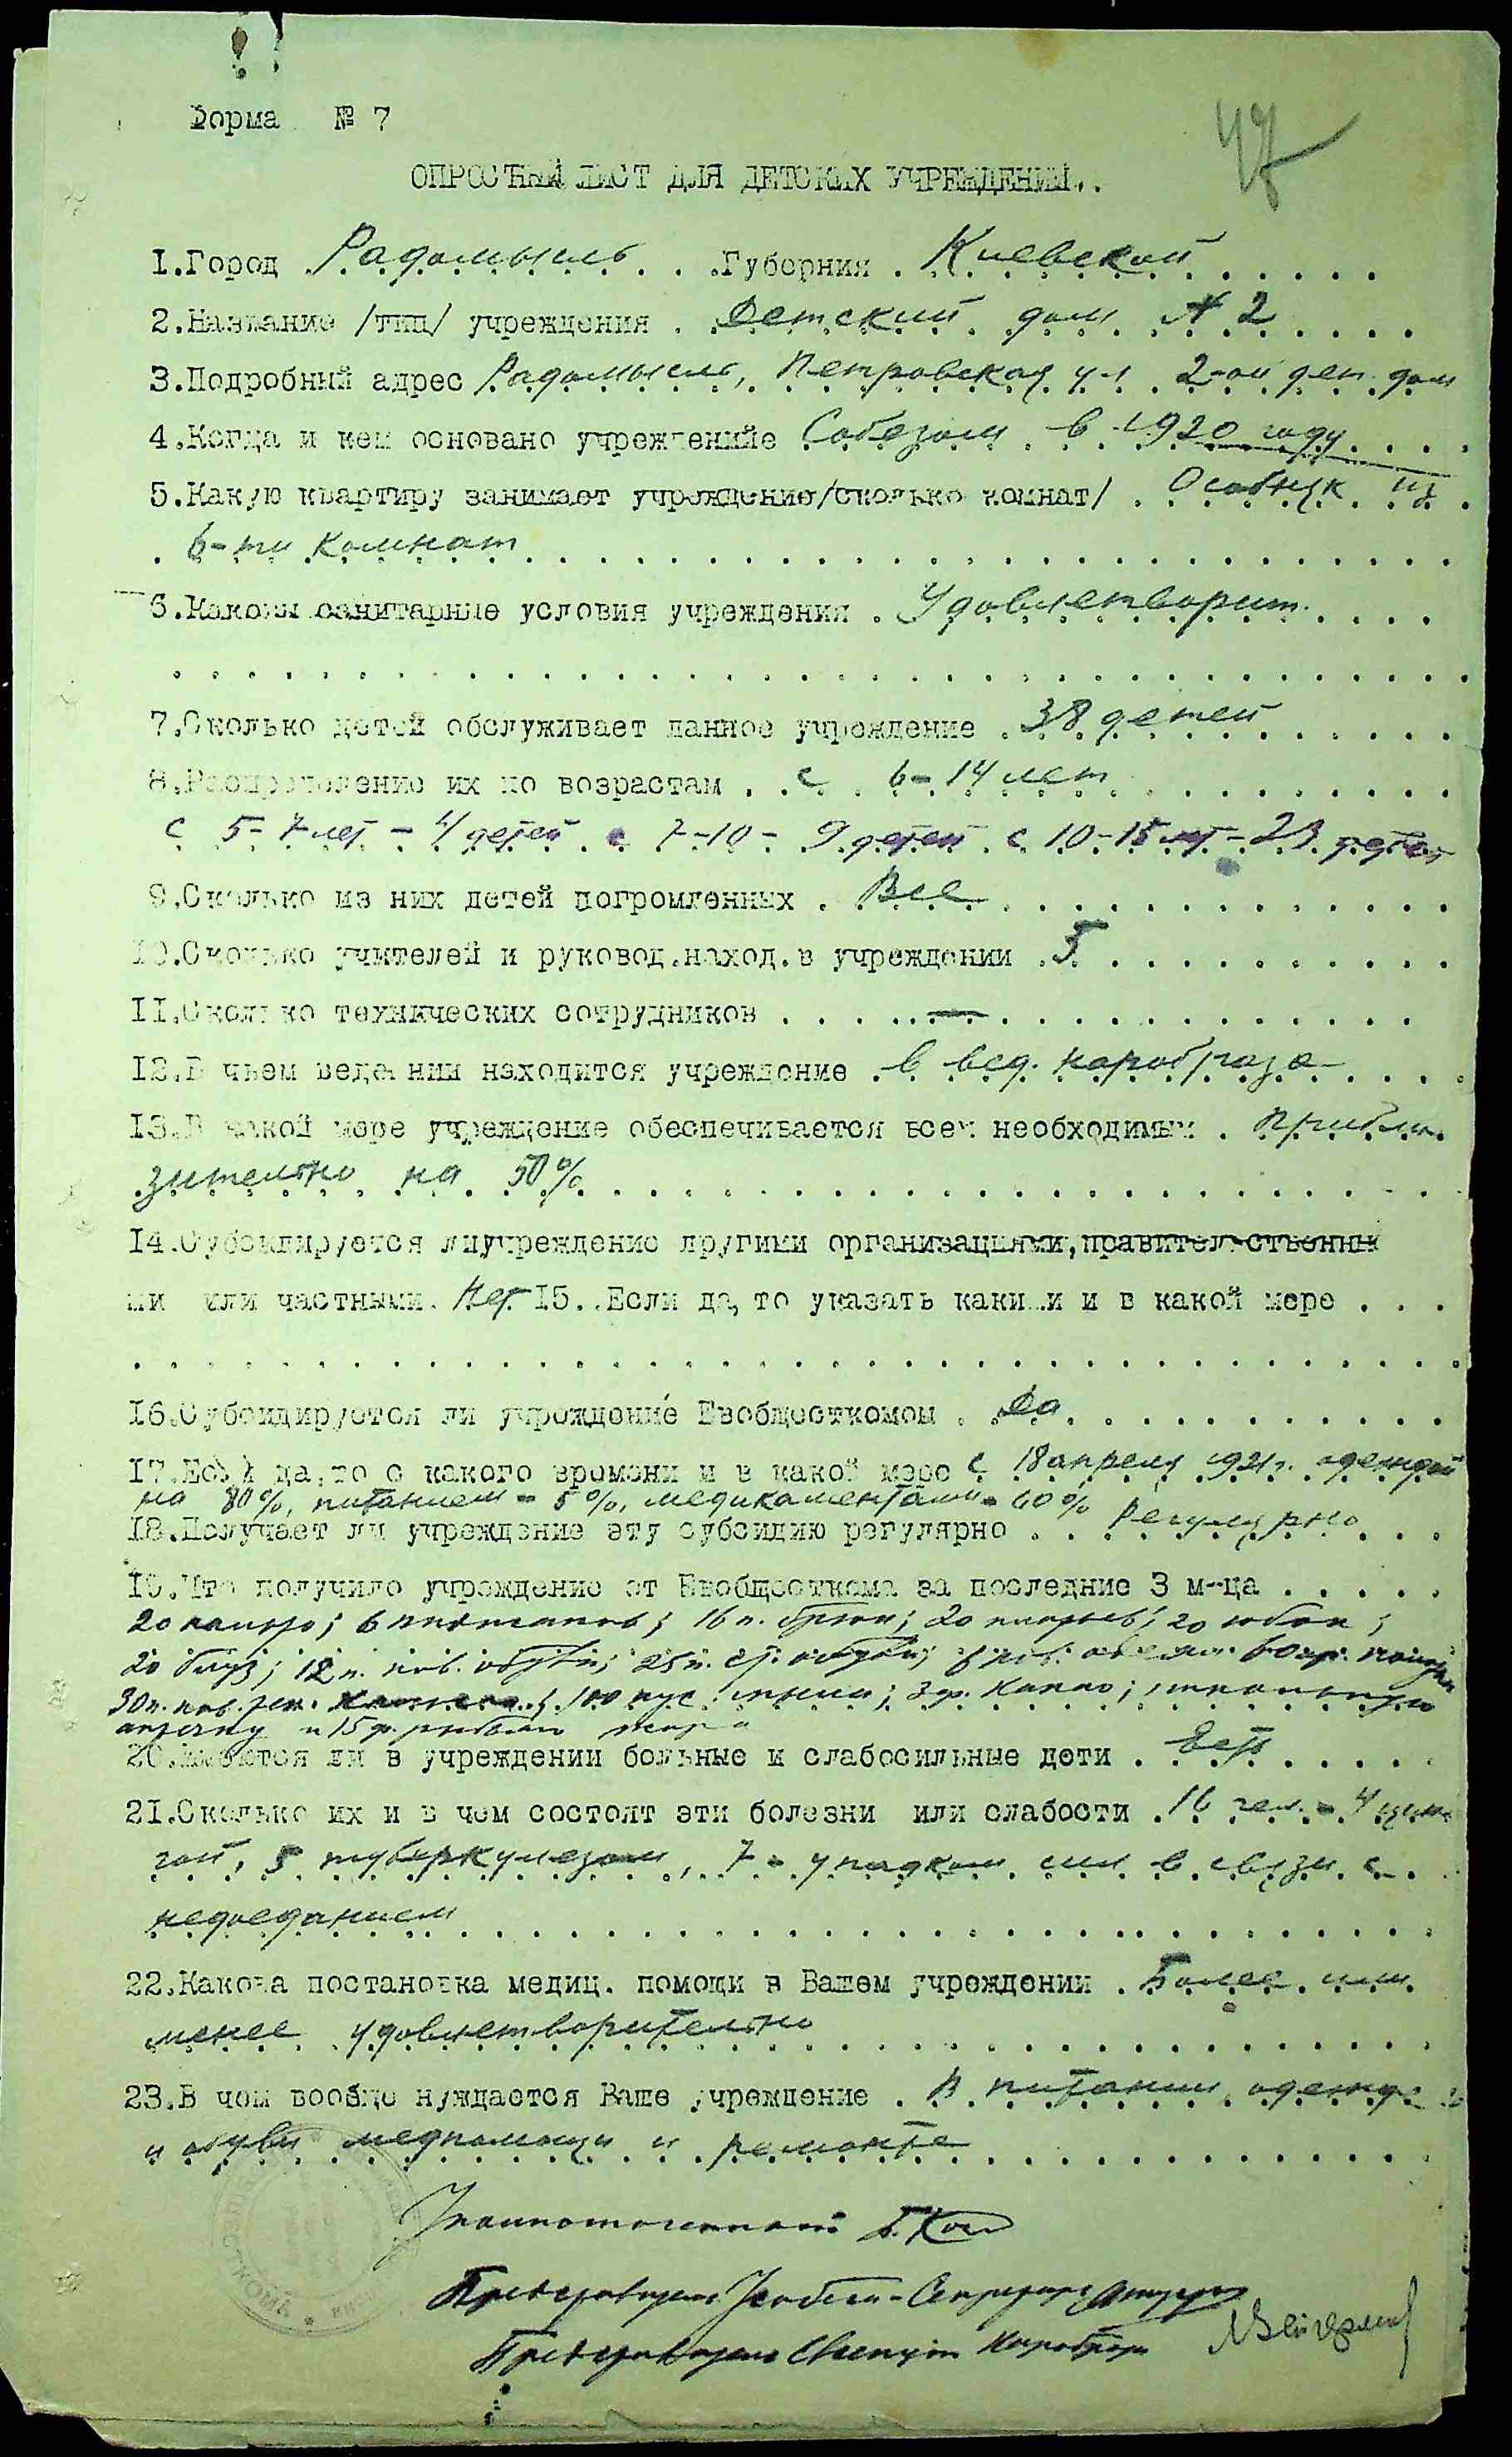 Форма № 7
47
ОПРОСТНЫЙ ЛИСТ ДЛЯ ДЕТСКИХ УЧРЕЖДЕНИЙ..
1.Город Радомысль . . .Губерния . Киевской
2.Название /тип/ учреждения . Детский дом № 2
3.Подробный адрес Радомысль, Петровская ул 2-ой дет. дом
4.Когда и кем основано учреждение Собезом в 1920 году
5.Какую квартиру занимает учреждение/сколько комнат/ . Особняк из
6-ти комнат
6.Каковы санитарные условия учреждения . Удовлетворит.
7.Сколько детей обслуживает данное учреждение . 38 детей
8.Распределение их по возрастам . . с 6-14 лет
с 5-7 лет - 4 детей с 7-10 - 9 детей с 10-15 лет - 23 детей
9.Сколько из них детей погромленных . Все
10.Сколько учителей и руковод.наход.в учреждении . 5
11.Сколько технических сотрудников . . . . . —
12.В чьем ведении находится учреждение . в вед. наробраза
13.В какой мере учреждение обеспечивается всем необходимым . прибли-
зительно на 50%
14.Субсидируется лиучреждение другими организациями,правительственны
ми или частными. Нет 15. .Если да,то указать какими и в какой мере . . .
16.Субсидируется ли учреждение Евобщесткомом . Да
17.Если да,то с какого времени и в какой мере с 18 апреля 1921г. одеждой
на 80%, питанием - 5%, медикаментами - 60%
18.Получает ли учреждение эту субсидию регулярно . . Регулярно
19.Что получило учреждение от Евобщесткома за последние 3 м-ца . . . . .
20 пальто; 6 16 п. брюк; 20 20 юбок;
20 блуз; 12 п. нов. обуви; 25 п. ст. обуви;
30 п. нов. 100 кус. мыла; 3 ф. какао;
аптечку и 15 ф. рыбьего жира
20.Имеются ли в учреждении больные и слабосильные дети . Есть
21.Сколько их и в чем состоят эти болезни или слабости . 16 чел. - 4 цын-
гой, 5 туберкулезом, 7 - упадком сил в связи с
недоеданием
22.Какова постановка медиц. помощи в Вашем учреждении . Более или
менее удовлетворительно
23.В чем вообще нуждается Ваше учреждение . В питании, одежде
и обуви медпомощи и ремонте